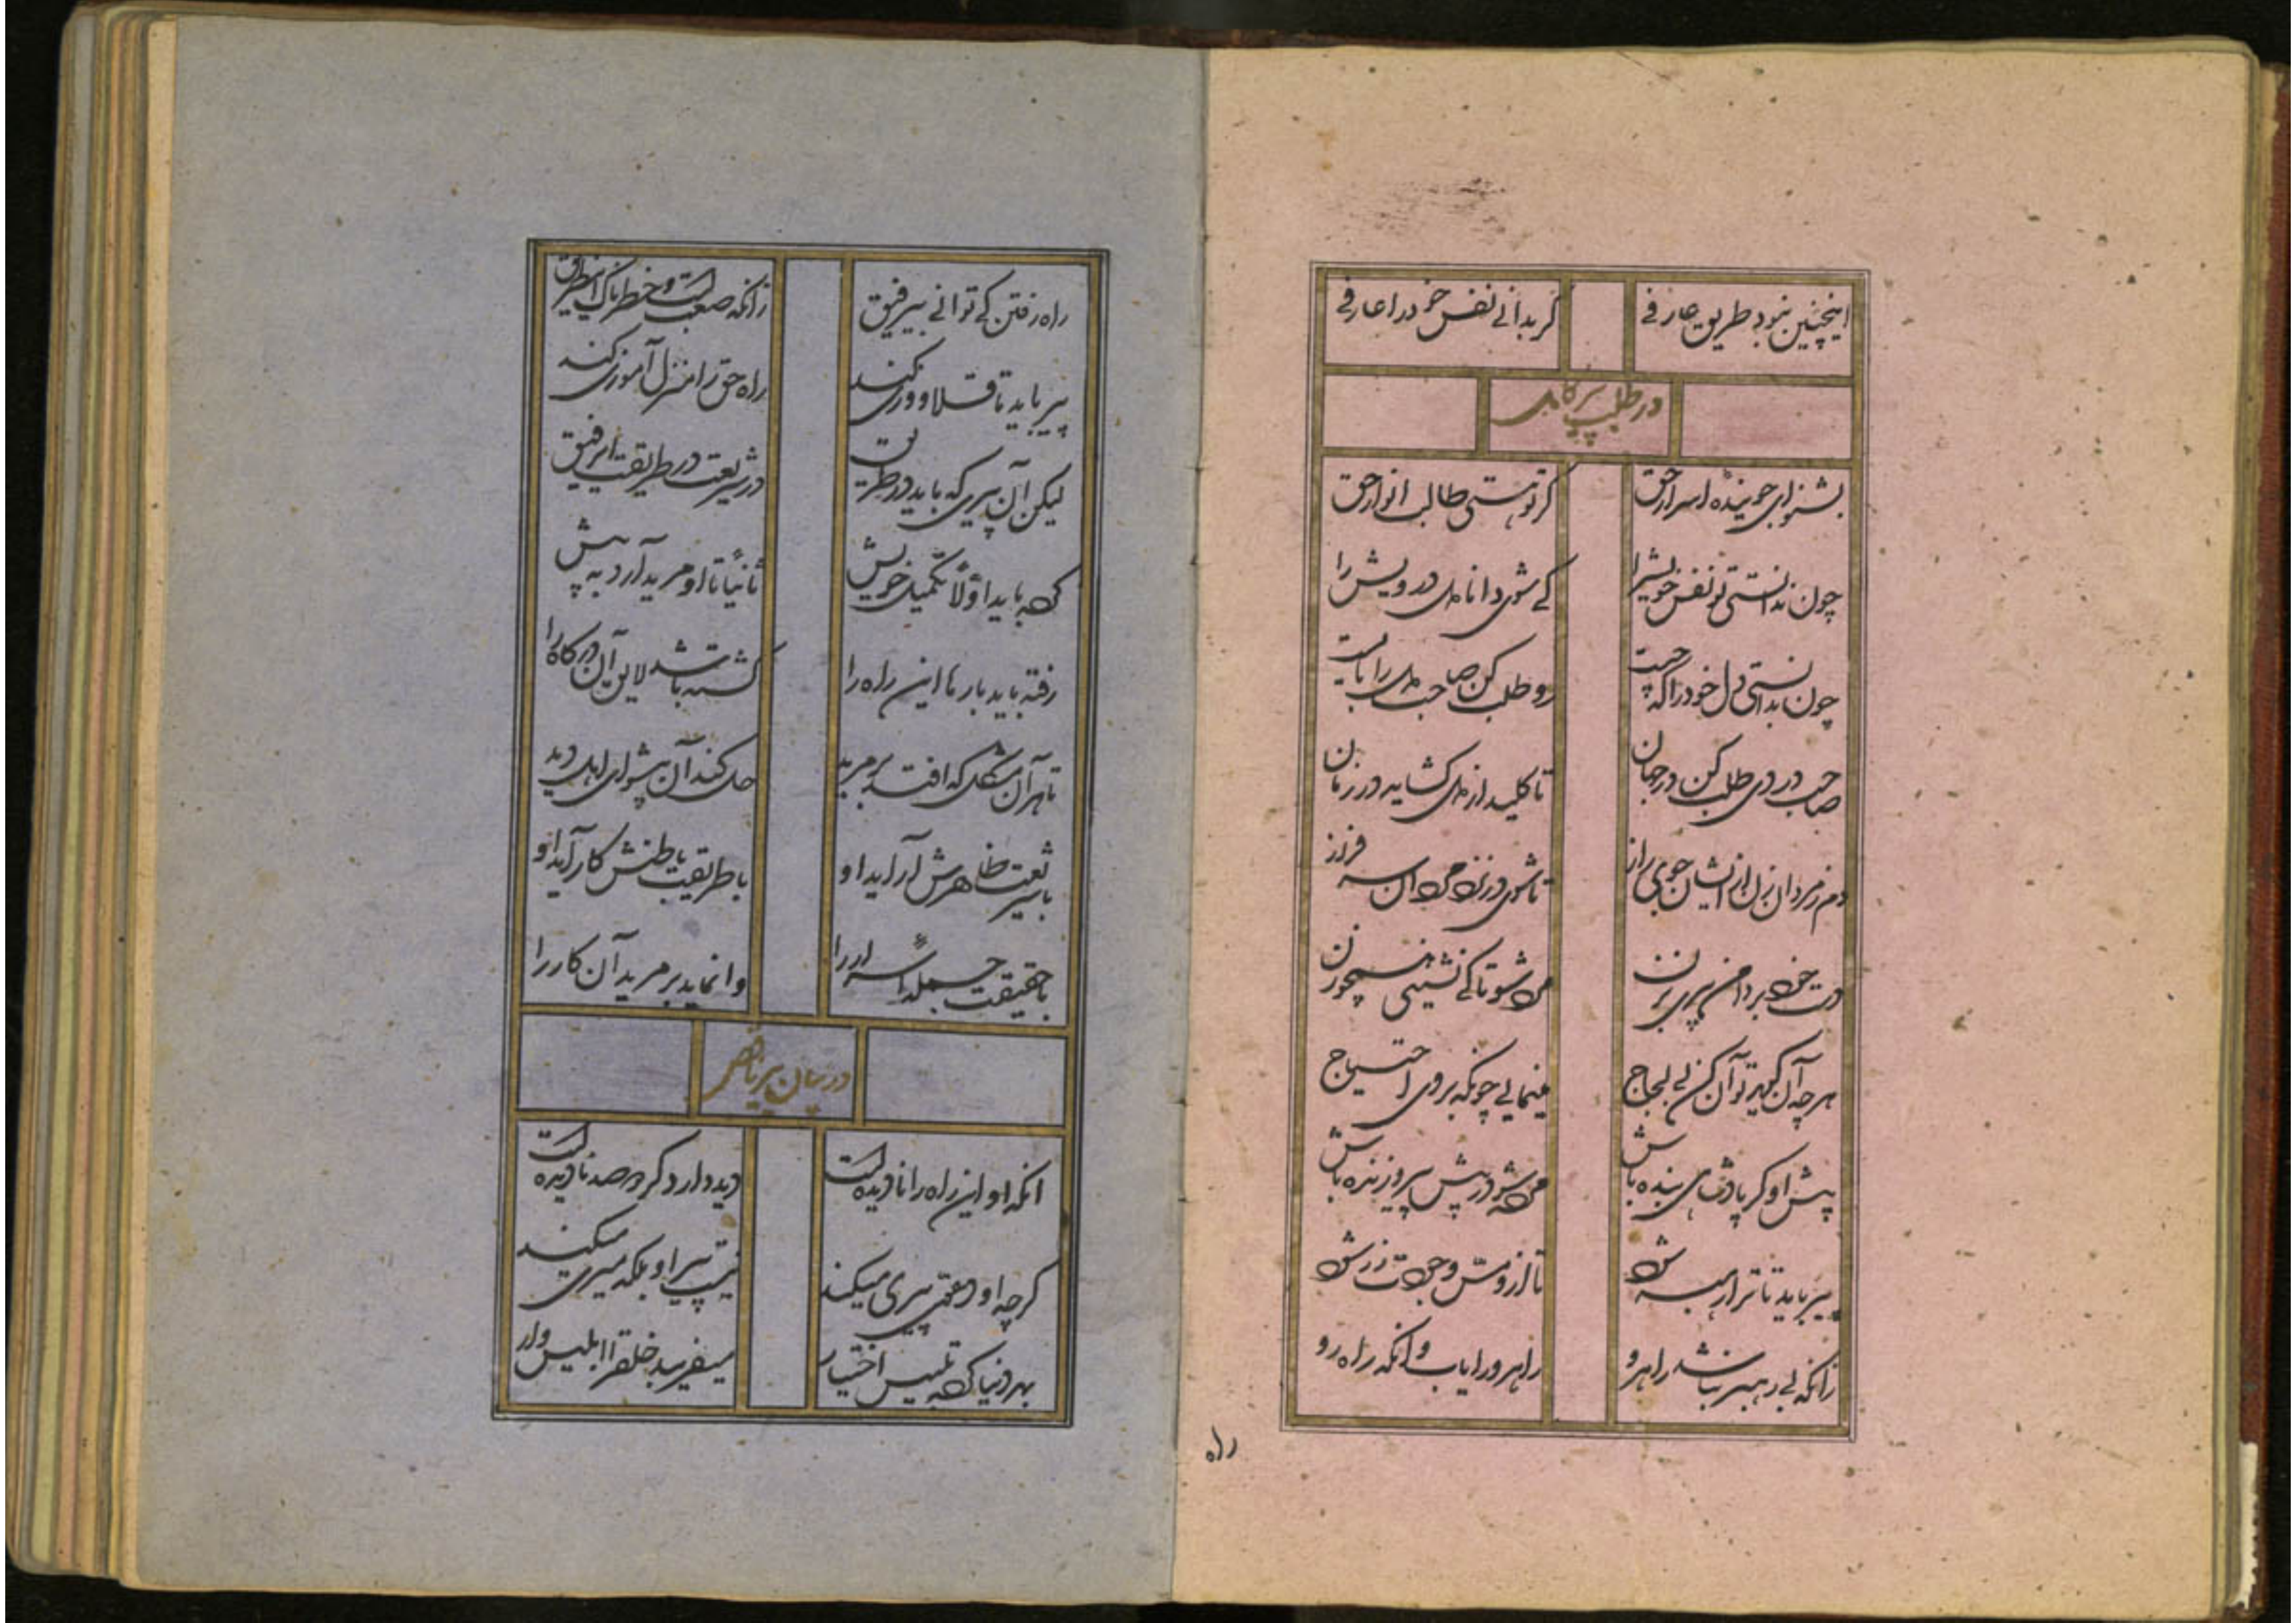 اینچنین نبود طریق عارفی گر بدانی نفس خود را عارفی
در طلب پیر کامل
بشنو ای جوینده اسرار حق گر تو هستی طالب انوار حق
چون ندانستی تو نفس خویش را کی شوی دانا دل درویش را
چون بدانستی دل خود را که چیست رو طلب کن صاحب دل را بایست
صاحب دردی طلب کن در جهان تا کلید از دل کشاید در زمان
دم ز مردان زن از ایشان جوی راز تا شوی در نزد سرفراز
دست خود بر دامن پیری بزن تا کی نشینی همچو زن
هر چه آن گوید تو آن کن بی لجاج مینمایی چونکه بر وی احتیاج
پیش او گر پادشاهی بنده باش در پیش پیر و زنده باش
پیر باید تا ترا تا از و مس وجودت زر شود
زانکه بی رهبر نباشد راهرو راهرو را یاب وانکه راه رو
راه
راه رفتن کی توانی بی رفیق زانکه صعبست و خطرناک این طریق
پیر باید تا قلاووزی کند راه حق را منزل آموزی کند
لیکن آن پیری که باید در طریق در شریعت در طریقت ای رفیق
که باید اولا تکمیل خویش ثانیاً تا او مرید آرد به پیش
رفته باید بارها این راه را کشته باشد لایق آن درکاه را
تا هر آن مشکل که افتد بر مرید حل کند آن پیشوای اهل دید
با شریعت ظاهرش آراید او با طریقت باطنش کار آید او
با حقیقت جمله اسرار را وا نماید بر مرید آن کار را
در بیان پیر ناقص
انکه او این راه را نادیده است دیده دارد کر چه صد نادیده است
کرچه او دعوی پیری میکند نیست پیر او بلکه میری میکند
بهر دنیا کرده تلبیس اختیار میفریبد خلق را ابلیس وار